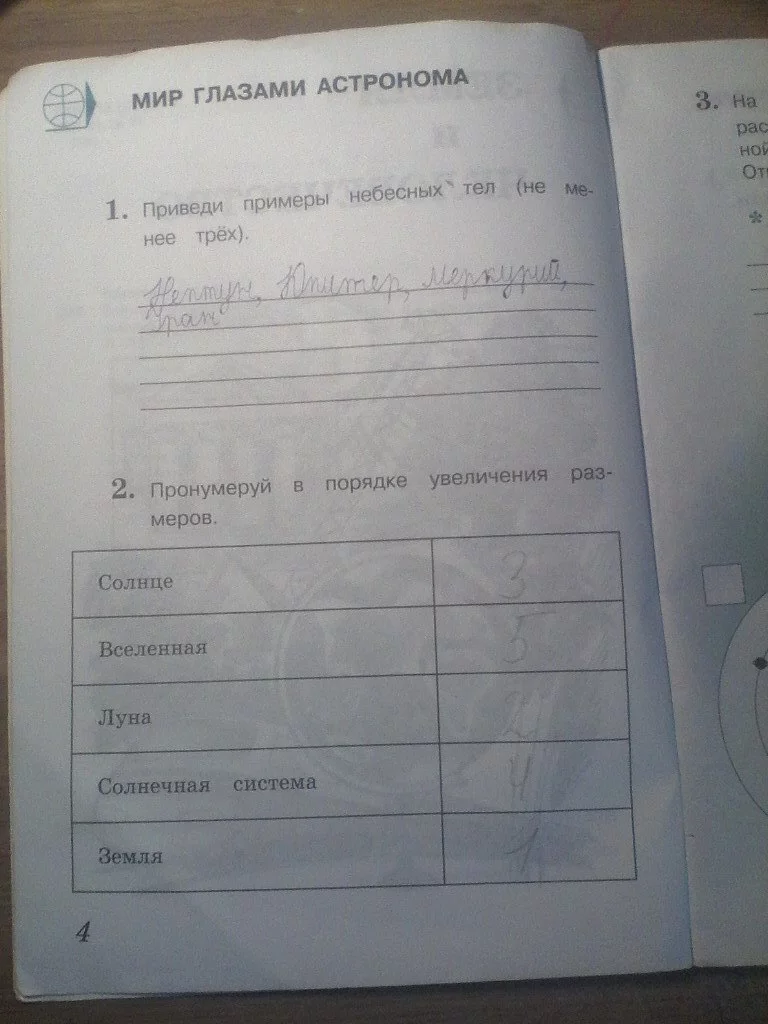 МИР ГЛАЗАМИ АСТРОНОМА
1. Приведи примеры небесных тел (не ме-
нее трёх).
Нептун, Юпитер, меркурий,
Уран
2. Пронумеруй в порядке увеличения раз-
меров.
Солнце 3
Вселенная 5
Луна 2
Солнечная система 4
Земля 1
4
3. На
рас
ной
От
*